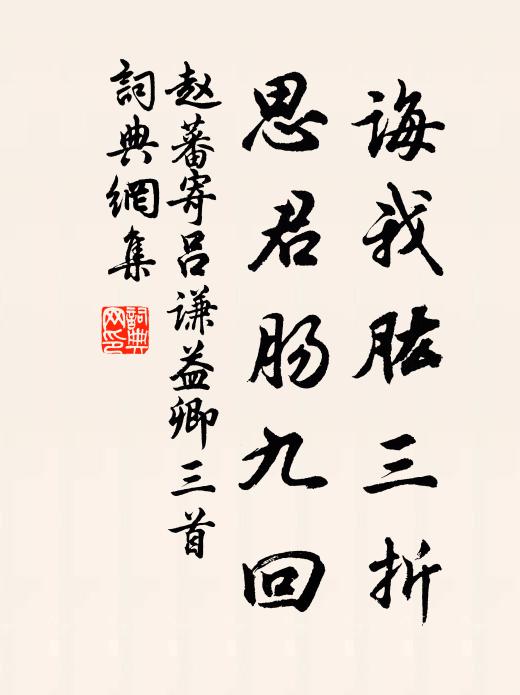 诲我肱三折
思君肠九回
赵蕃寄吕谦益卿三首
词典網集
詞典网印